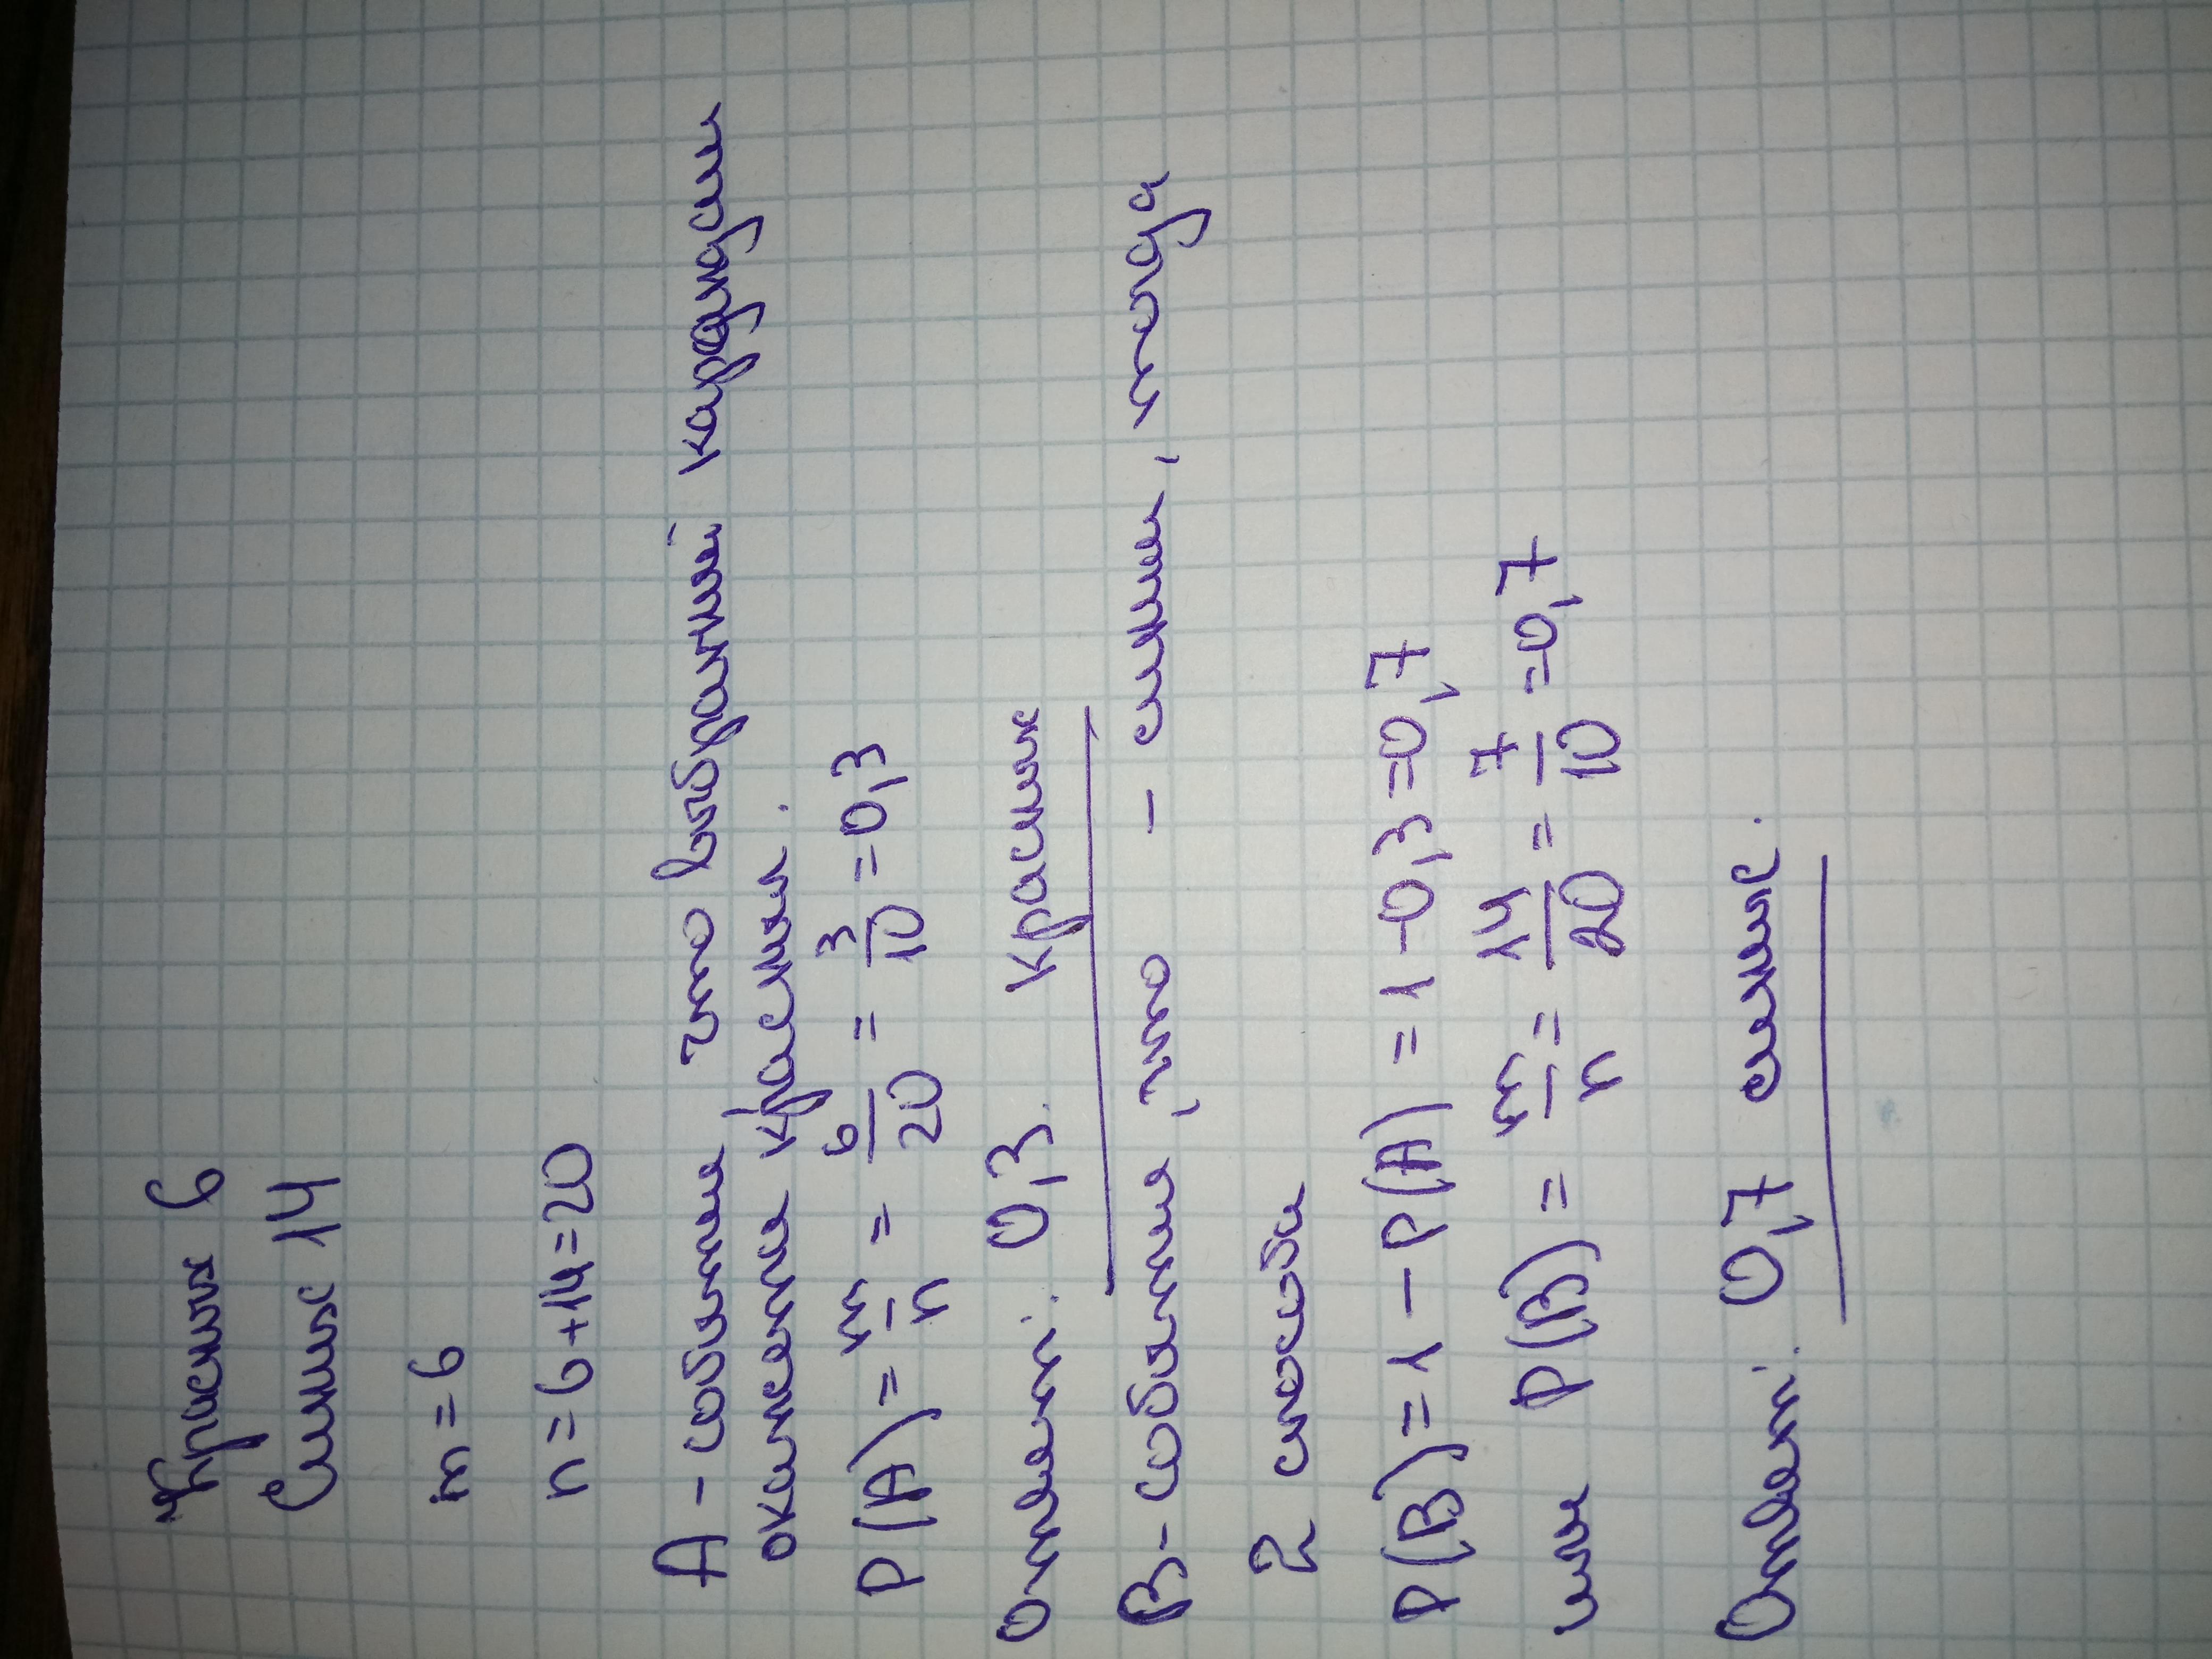 Красных 6
Синих 14
m = 6
n = 6 + 14 = 20
A - событие, что выбранный карандаш
окажется красным.
P(A) = m/n = 6/20 = 3/10 = 0,3
Ответ: 0,3. красных
B - событие, что - синим, тогда
2 способа
P(B) = 1 - P(A) = 1 - 0,3 = 0,7
или P(B) = m/n = 14/20 = 7/10 = 0,7
Ответ: 0,7 синих.